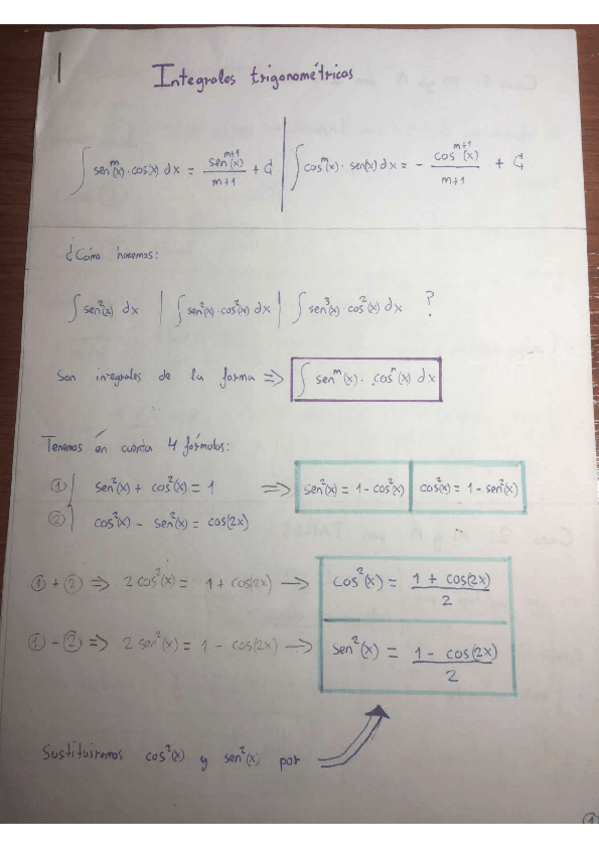 Integrales trigonométricas
∫ senᵐ(x)·cos(x) dx = senᵐ⁺¹(x) / m+1 + C | ∫ cosᵐ(x)·sen(x) dx = - cosᵐ⁺¹(x) / m+1 + C
¿Cómo hacemos:
∫ sen²(x) dx | ∫ sen²(x)·cos²(x) dx | ∫ sen³(x)·cos²(x) dx ?
Son integrales de la forma => ∫ senᵐ(x)· cosⁿ(x) dx
Tenemos en cuenta 4 fórmulas:
① sen²(x) + cos²(x) = 1 => sen²(x) = 1 - cos²(x) | cos²(x) = 1 - sen²(x)
② cos²(x) - sen²(x) = cos(2x)
① + ② => 2 cos²(x) = 1 + cos(2x) → cos²(x) = 1 + cos(2x) / 2
① - ② => 2 sen²(x) = 1 - cos(2x) → sen²(x) = 1 - cos(2x) / 2
Sustituiremos cos²(x) y sen²(x) por
①